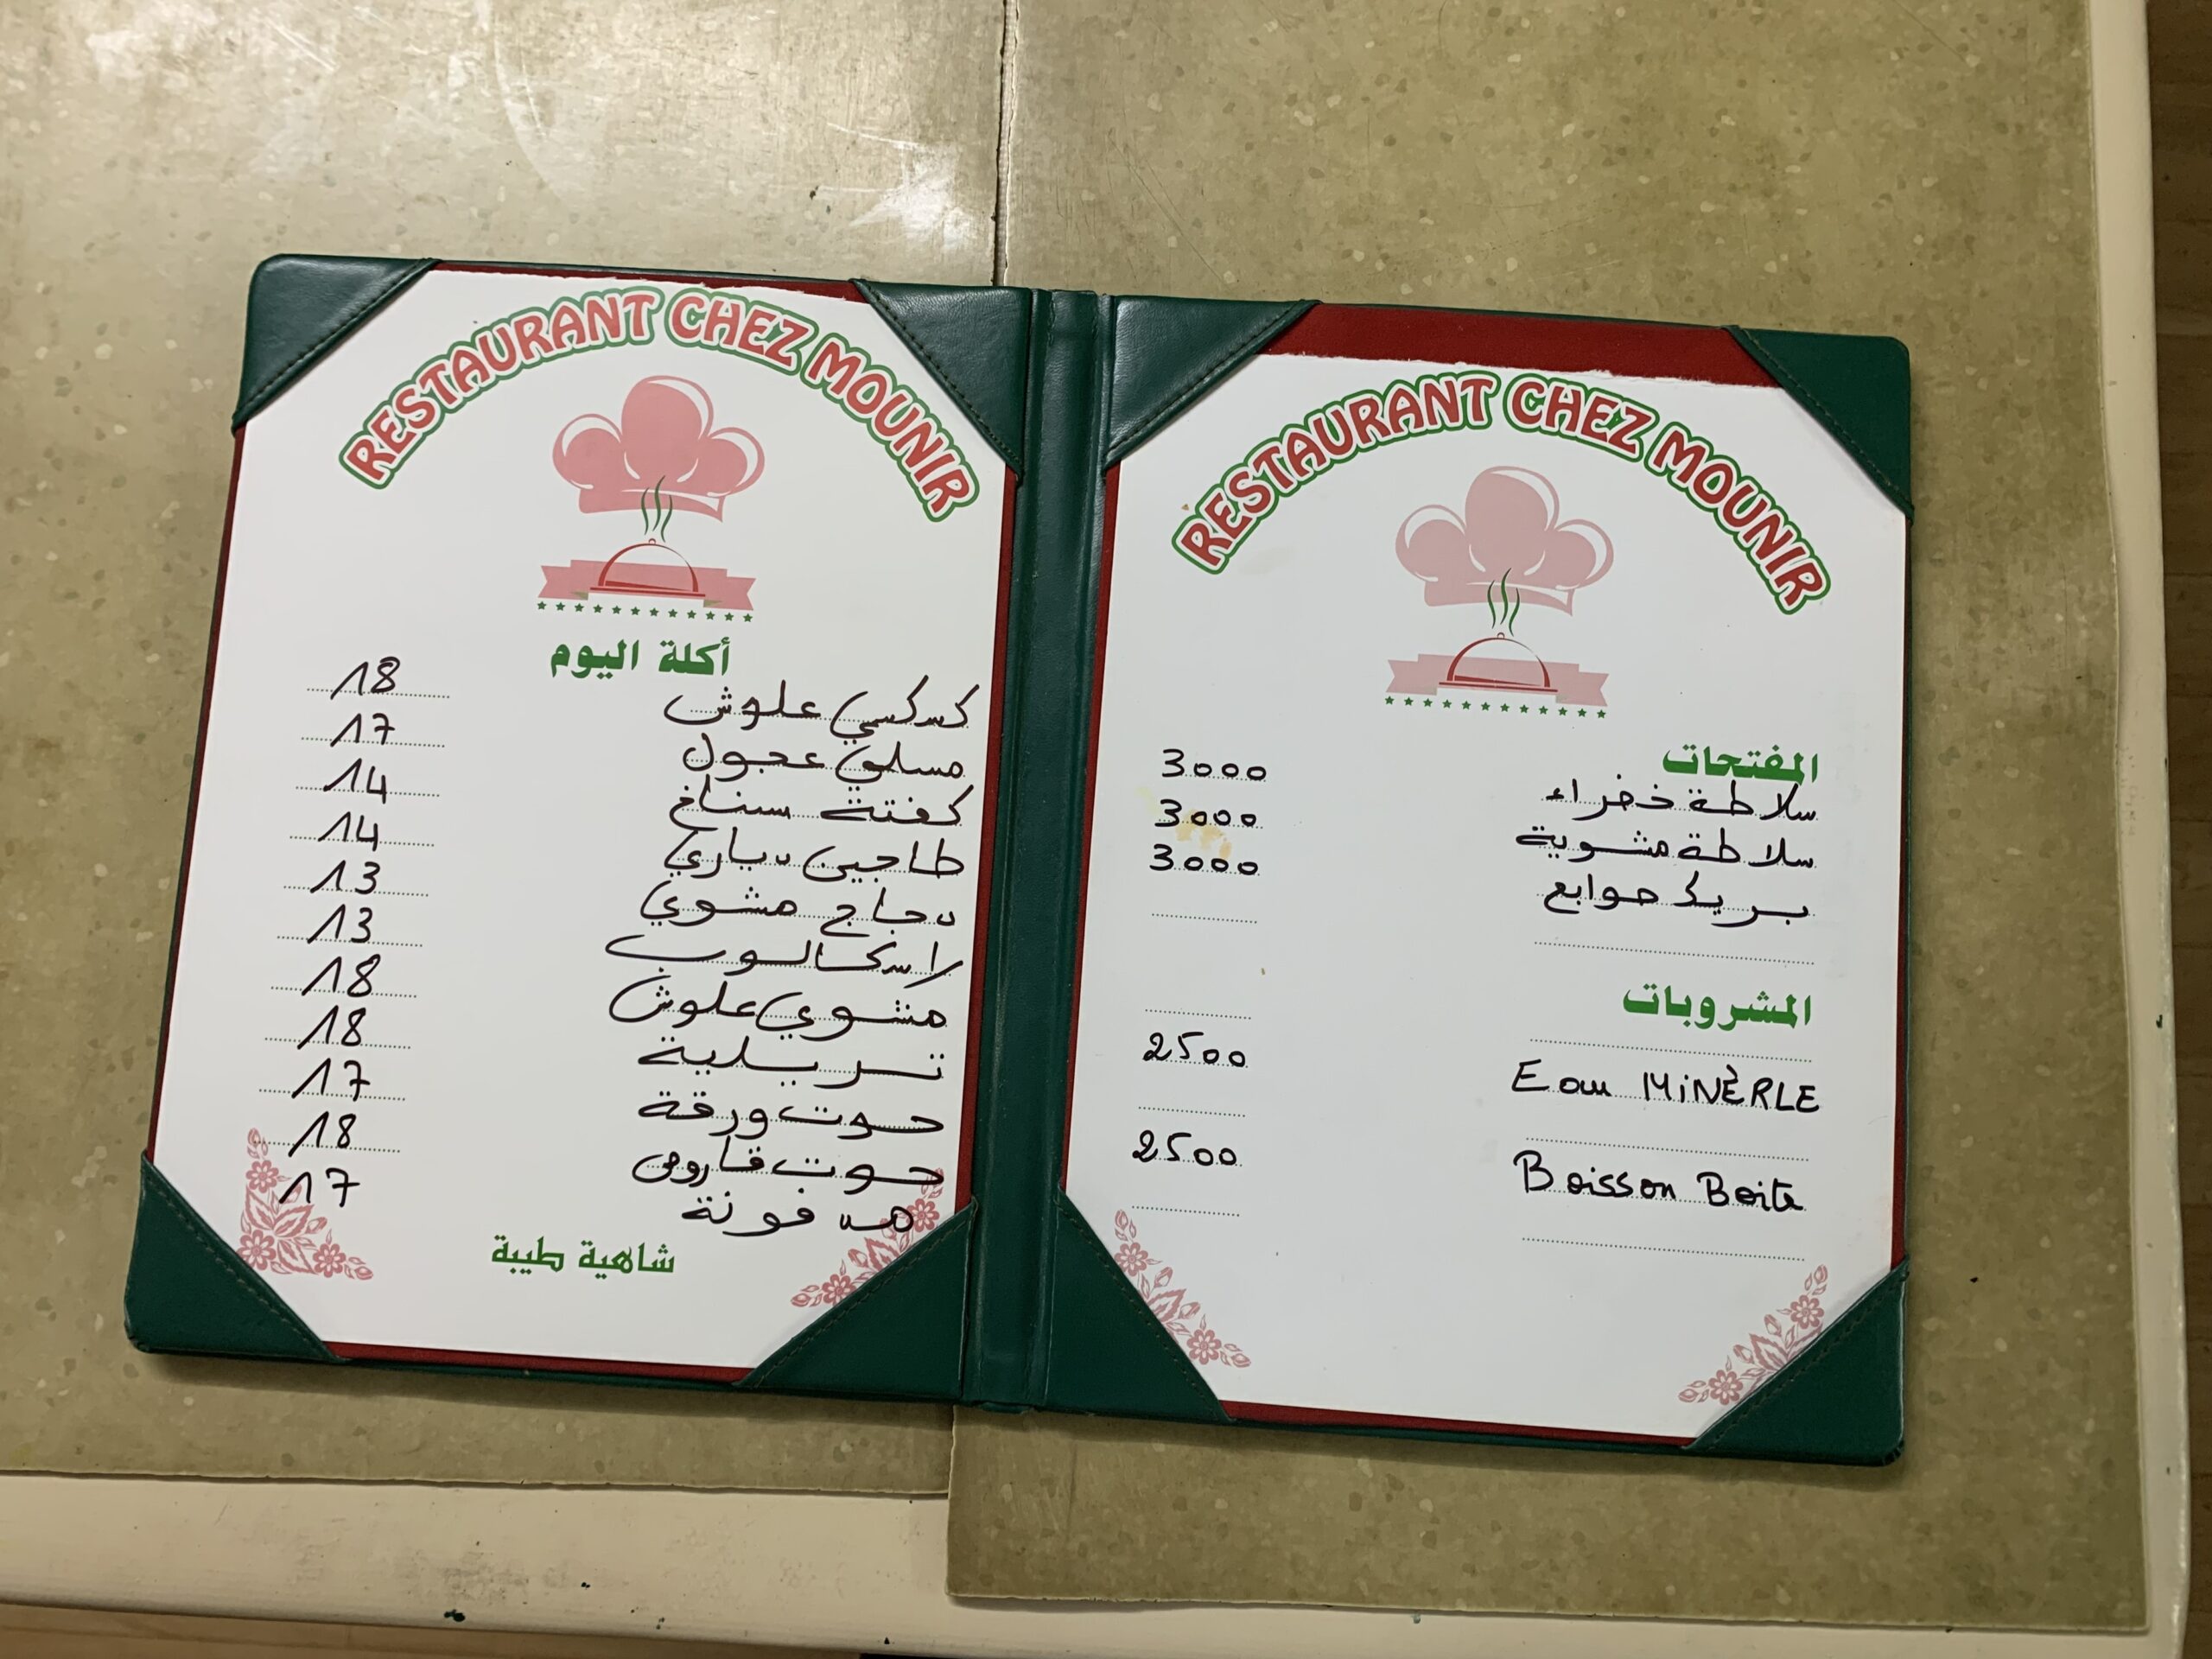 RESTAURANT CHEZ MOUNIR
أكلة اليوم
كسكسي علوش 18
مسلي عجول 17
كفتة سبناخ 14
طاجين دياري 14
دجاج مشوي 13
اسكالوب 13
مشوي علوش 18
تريلية 18
حوت ورقة 17
حوت قاروص 18
مدفونة 17
شاهية طيبة
RESTAURANT CHEZ MOUNIR
المفتحات
سلاطة خضراء 3000
سلاطة مشوية 3000
بريك صوابع 3000
المشروبات
Eau MINÈRLE 2500
Boisson Boite 2500